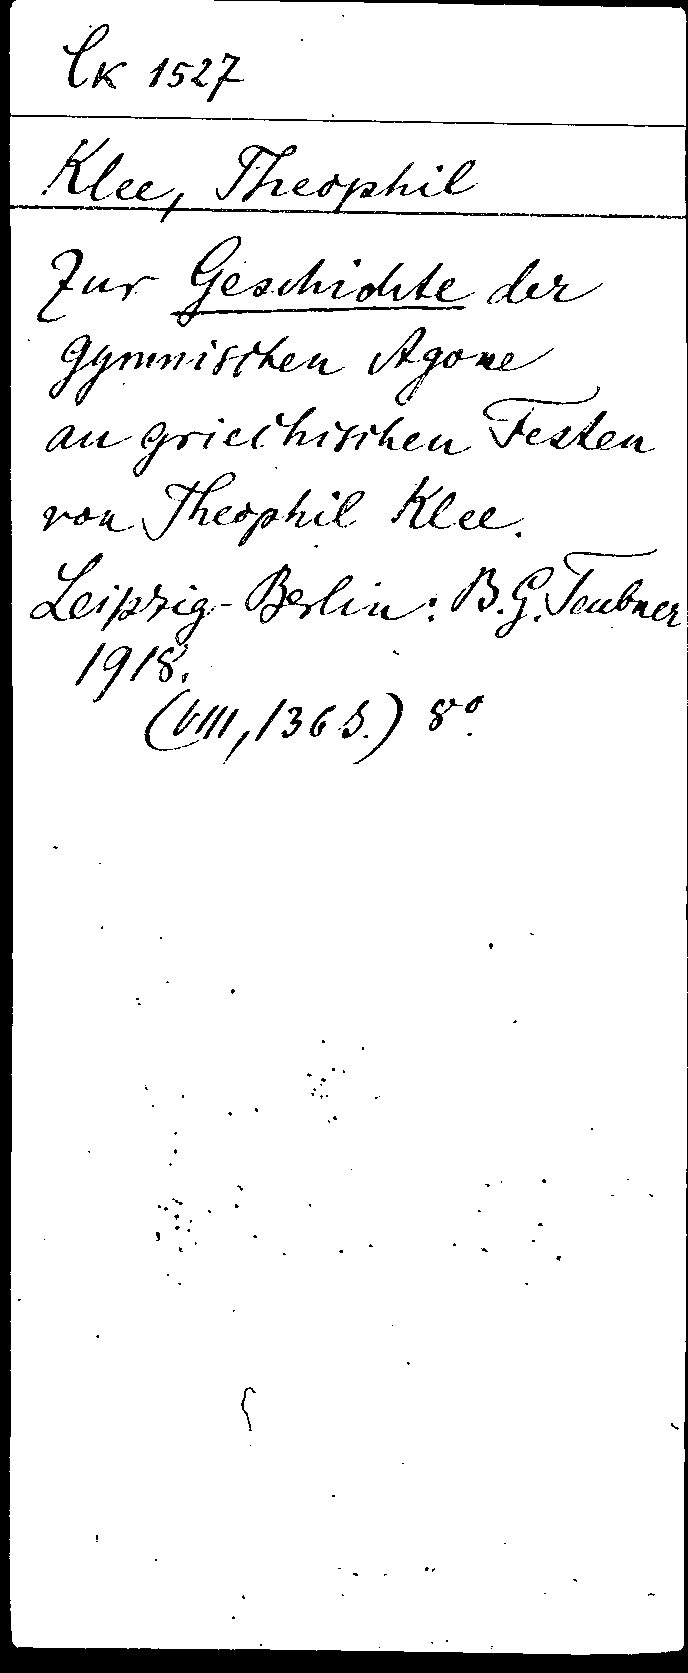 Ck 1527
Klee, Theophil
Zur Geschichte der
gymnischen Agone
an griechischen Festen
von Theophil Klee.
Leipzig-Berlin: B.G. Teubner
1918.
(VIII, 136 S.) 8°.